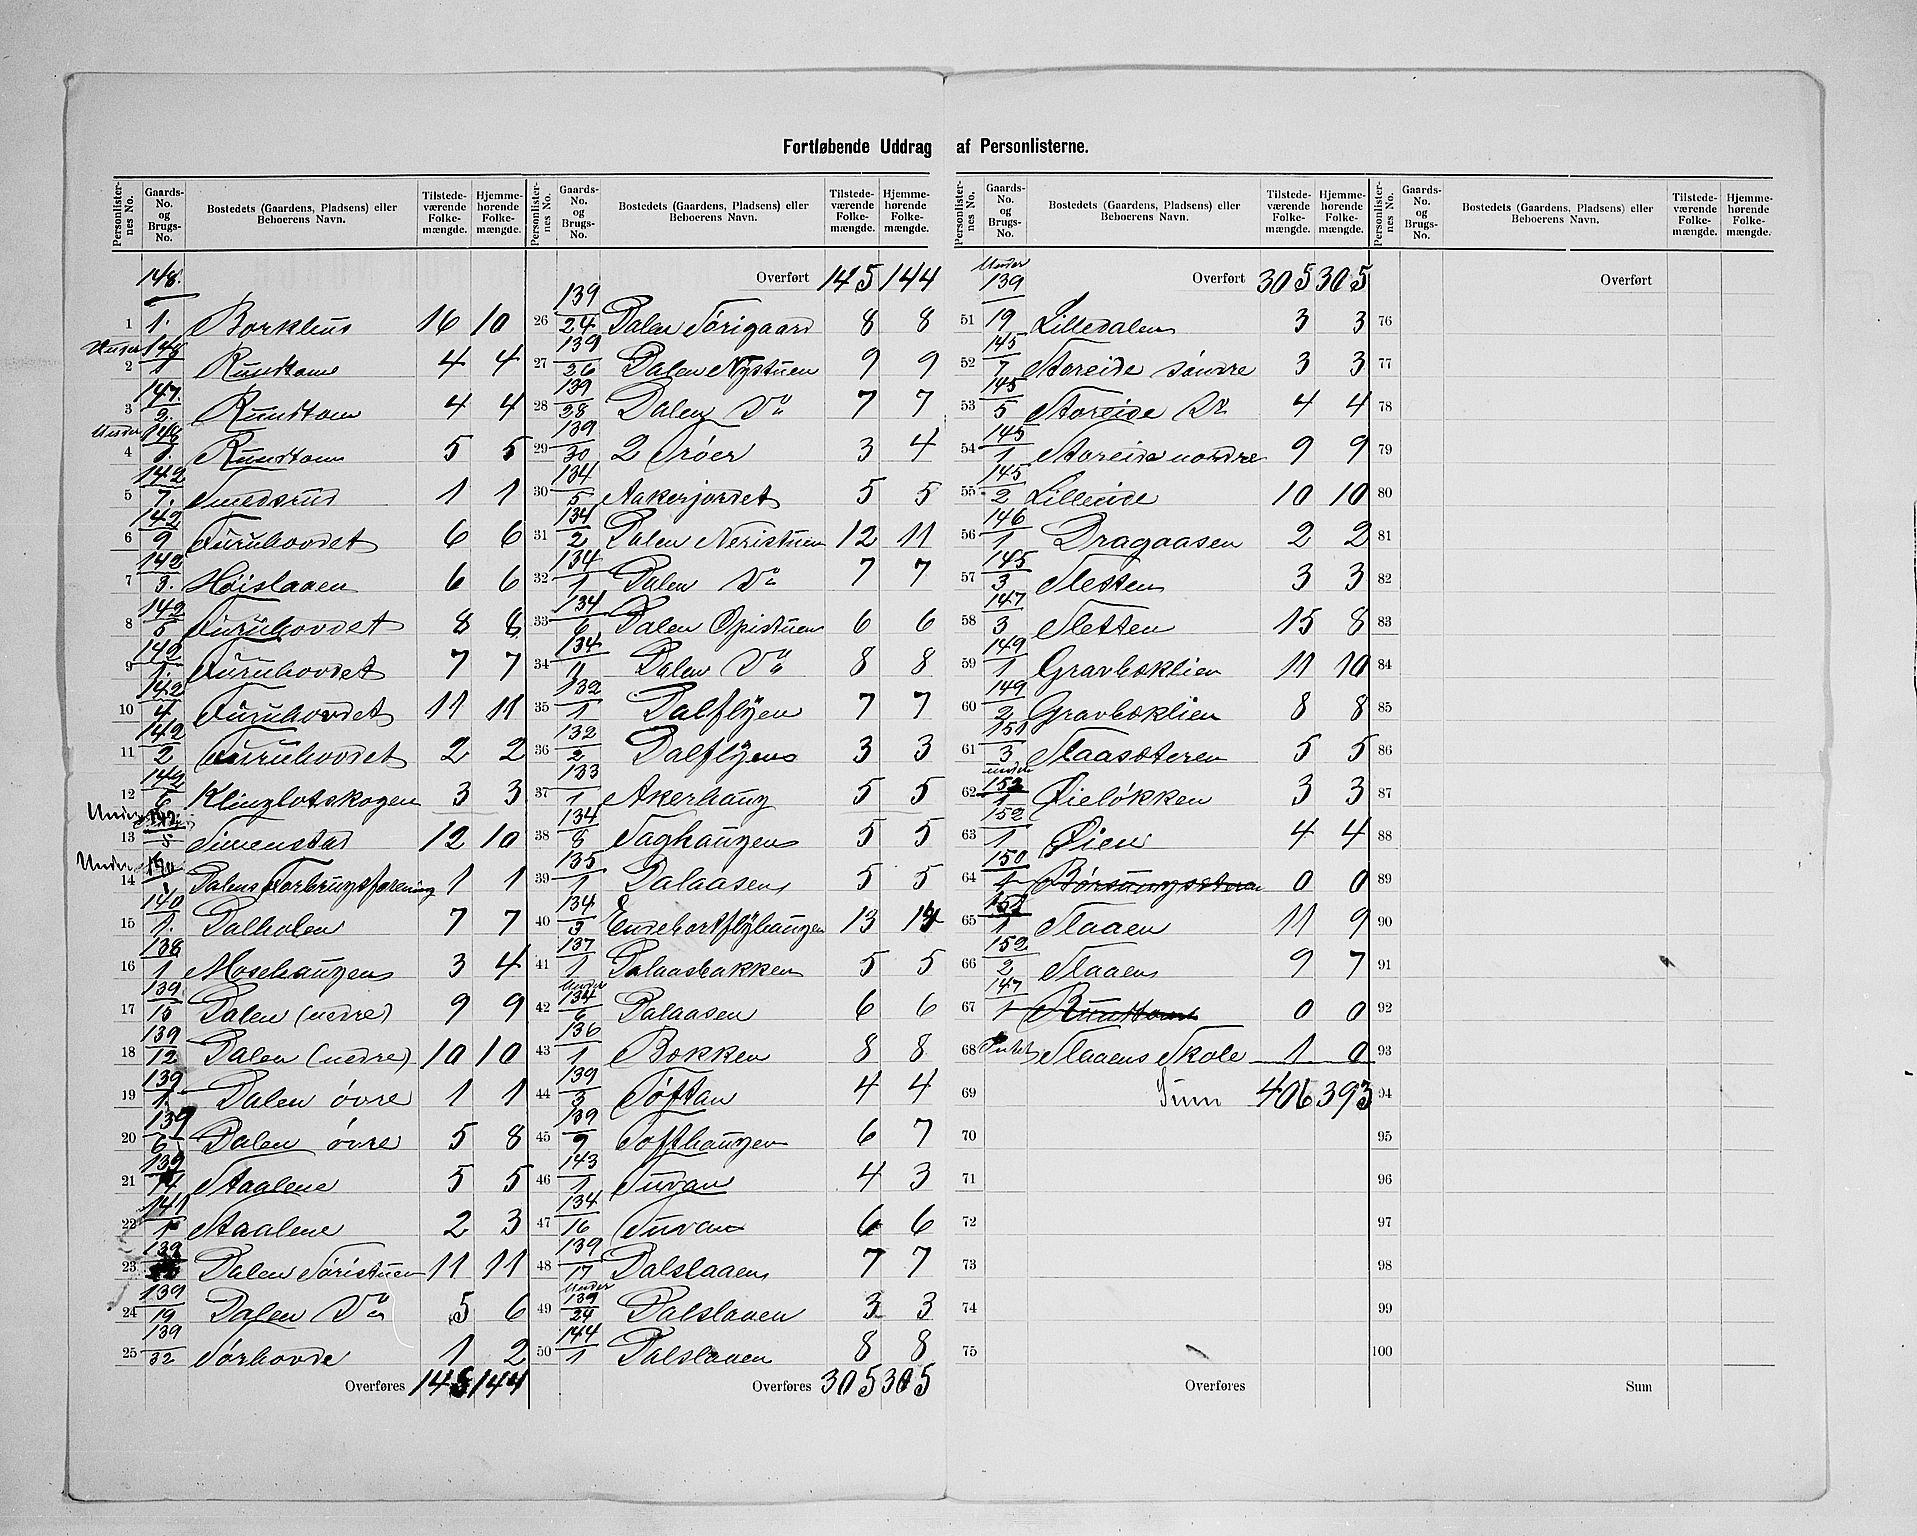 Fortløbende Uddrag af Personlisterne.
Personlisternes No. Gaards-No. og Brugs-No. Bostedets (Gaardens, Pladsens) eller Beboerens Navn. Tilstedeværende Folkemængde. Hjemmehørende Folkemængde.
148.
1 1. Borkhus 16 10
2 Under 148/1 Rundtom 4 4
3 147./2. Rundtom 4 4
4 Under 148/1. Rundtom 5 5
5 142/7. Smedsrud 1 1
6 142/9 Furuhovdet 6 6
7 142/3. Høislaaen 6 6
8 142/5 Furuhovdet 8 8
9 142/1. Furuhovdet 7 7
10 142/4 Furuhovdet 11 11
11 142/2 Furuhovdet 2 2
12 142/6 Klinglotskogen 3 3
13 Under 142/5 Simenstad 12 10
14 Under 140/1 Dalens Forbrugsforening 1 1
15 140/1. Dalholen 7 7
16 138/1 Mosehaugen 3 4
17 139/15 Dalen (nedre) 9 9
18 139/12 Dalen (nedre) 10 10
19 139/1. Dalen øvre 1 1
20 139/6 Dalen øvre 5 8
21 139/14 Staalene 5 5
22 141/1 Staalene 2 3
23 139 Dalen Søristuen 11 11
24 139/19 Dalen Do 5 6
25 139/32 Sørhovde 1 2
Overføres 145 144
Personlisternes No. Gaards-No. og Brugs-No. Bostedets (Gaardens, Pladsens) eller Beboerens Navn. Tilstedeværende Folkemængde. Hjemmehørende Folkemængde.
Overført 145 144
26 139/24 Dalen Sørigaard 8 8
27 139/26 Dalen Nystuen 9 9
28 139/28 Dalen Do 7 7
29 139/30 2 Trøer 3 4
30 134/5 Aakerjordet 5 5
31 134/2 Dalen Neristuen 12 11
32 134/1 Dalen Do 7 7
33 134/6 Dalen Opistuen 6 6
34 134/11 Dalen Do 8 8
35 132/1 Dalflyen 7 7
36 132/2 Dalflyen 3 3
37 133/1 Akerhaug 5 5
38 134/8 Taghaugen 5 5
39 135/1 Dalaasen 5 5
40 134/3 Endebortflyhaugen 13 14
41 137/1 Dalaasbakken 5 5
42 Under 134/6 Dalaasen 6 6
43 136/1 Bækken 8 8
44 139/3 Tøftan 4 4
45 139/9 Tofthaugen 6 7
46 143/1 Turan 4 3
47 134/16 Turan 6 6
48 139/17 Dalslaaen 7 7
49 Under 139/24 Dalslaaen 3 3
50 144/1 Dalslaaen 8 8
Overføres 305 305
Personlisternes No. Gaards-No. og Brugs-No. Bostedets (Gaardens, Pladsens) eller Beboerens Navn. Tilstedeværende Folkemængde. Hjemmehørende Folkemængde.
Overført 305 305
51 Under 139/19 Lilledalen 3 3
52 145/7 Storeide søndre 3 3
53 145/5 Storeide Do 4 4
54 145/1 Storeide nordre 9 9
55 145/2 Lilleeide 10 10
56 146/1 Dragaasen 2 2
57 145/3 Sletten 3 3
58 147/3 Sletten 15 8
59 149/1 Gravbæklien 11 10
60 149/2 Gravbæklien 8 8
61 151/3 Slaasæteren 5 5
62 under 152/1 Øieløkken 3 3
63 152/1 Øien 4 4
64 150/1 Børsungsæteren 0 0
65 151/1 Slaaen 11 9
66 152/2 Slaaen 9 7
67 147/1 Rundtom 0 0
68 Intet Slaaens Skole 1 0
69 Sum 406 393
70
71
72
73
74
75
Overføres
Personlisternes No. Gaards-No. og Brugs-No. Bostedets (Gaardens, Pladsens) eller Beboerens Navn. Tilstedeværende Folkemængde. Hjemmehørende Folkemængde.
Overført
76
77
78
79
80
81
82
83
84
85
86
87
88
89
90
91
92
93
94
95
96
97
98
99
100
Sum